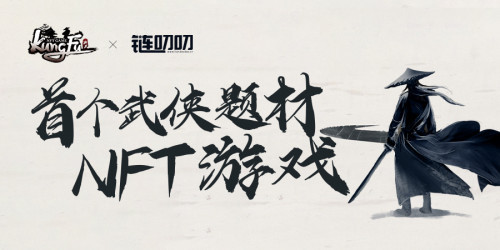 KungFu × 链叨叨
首个武侠题材
NFT游戏